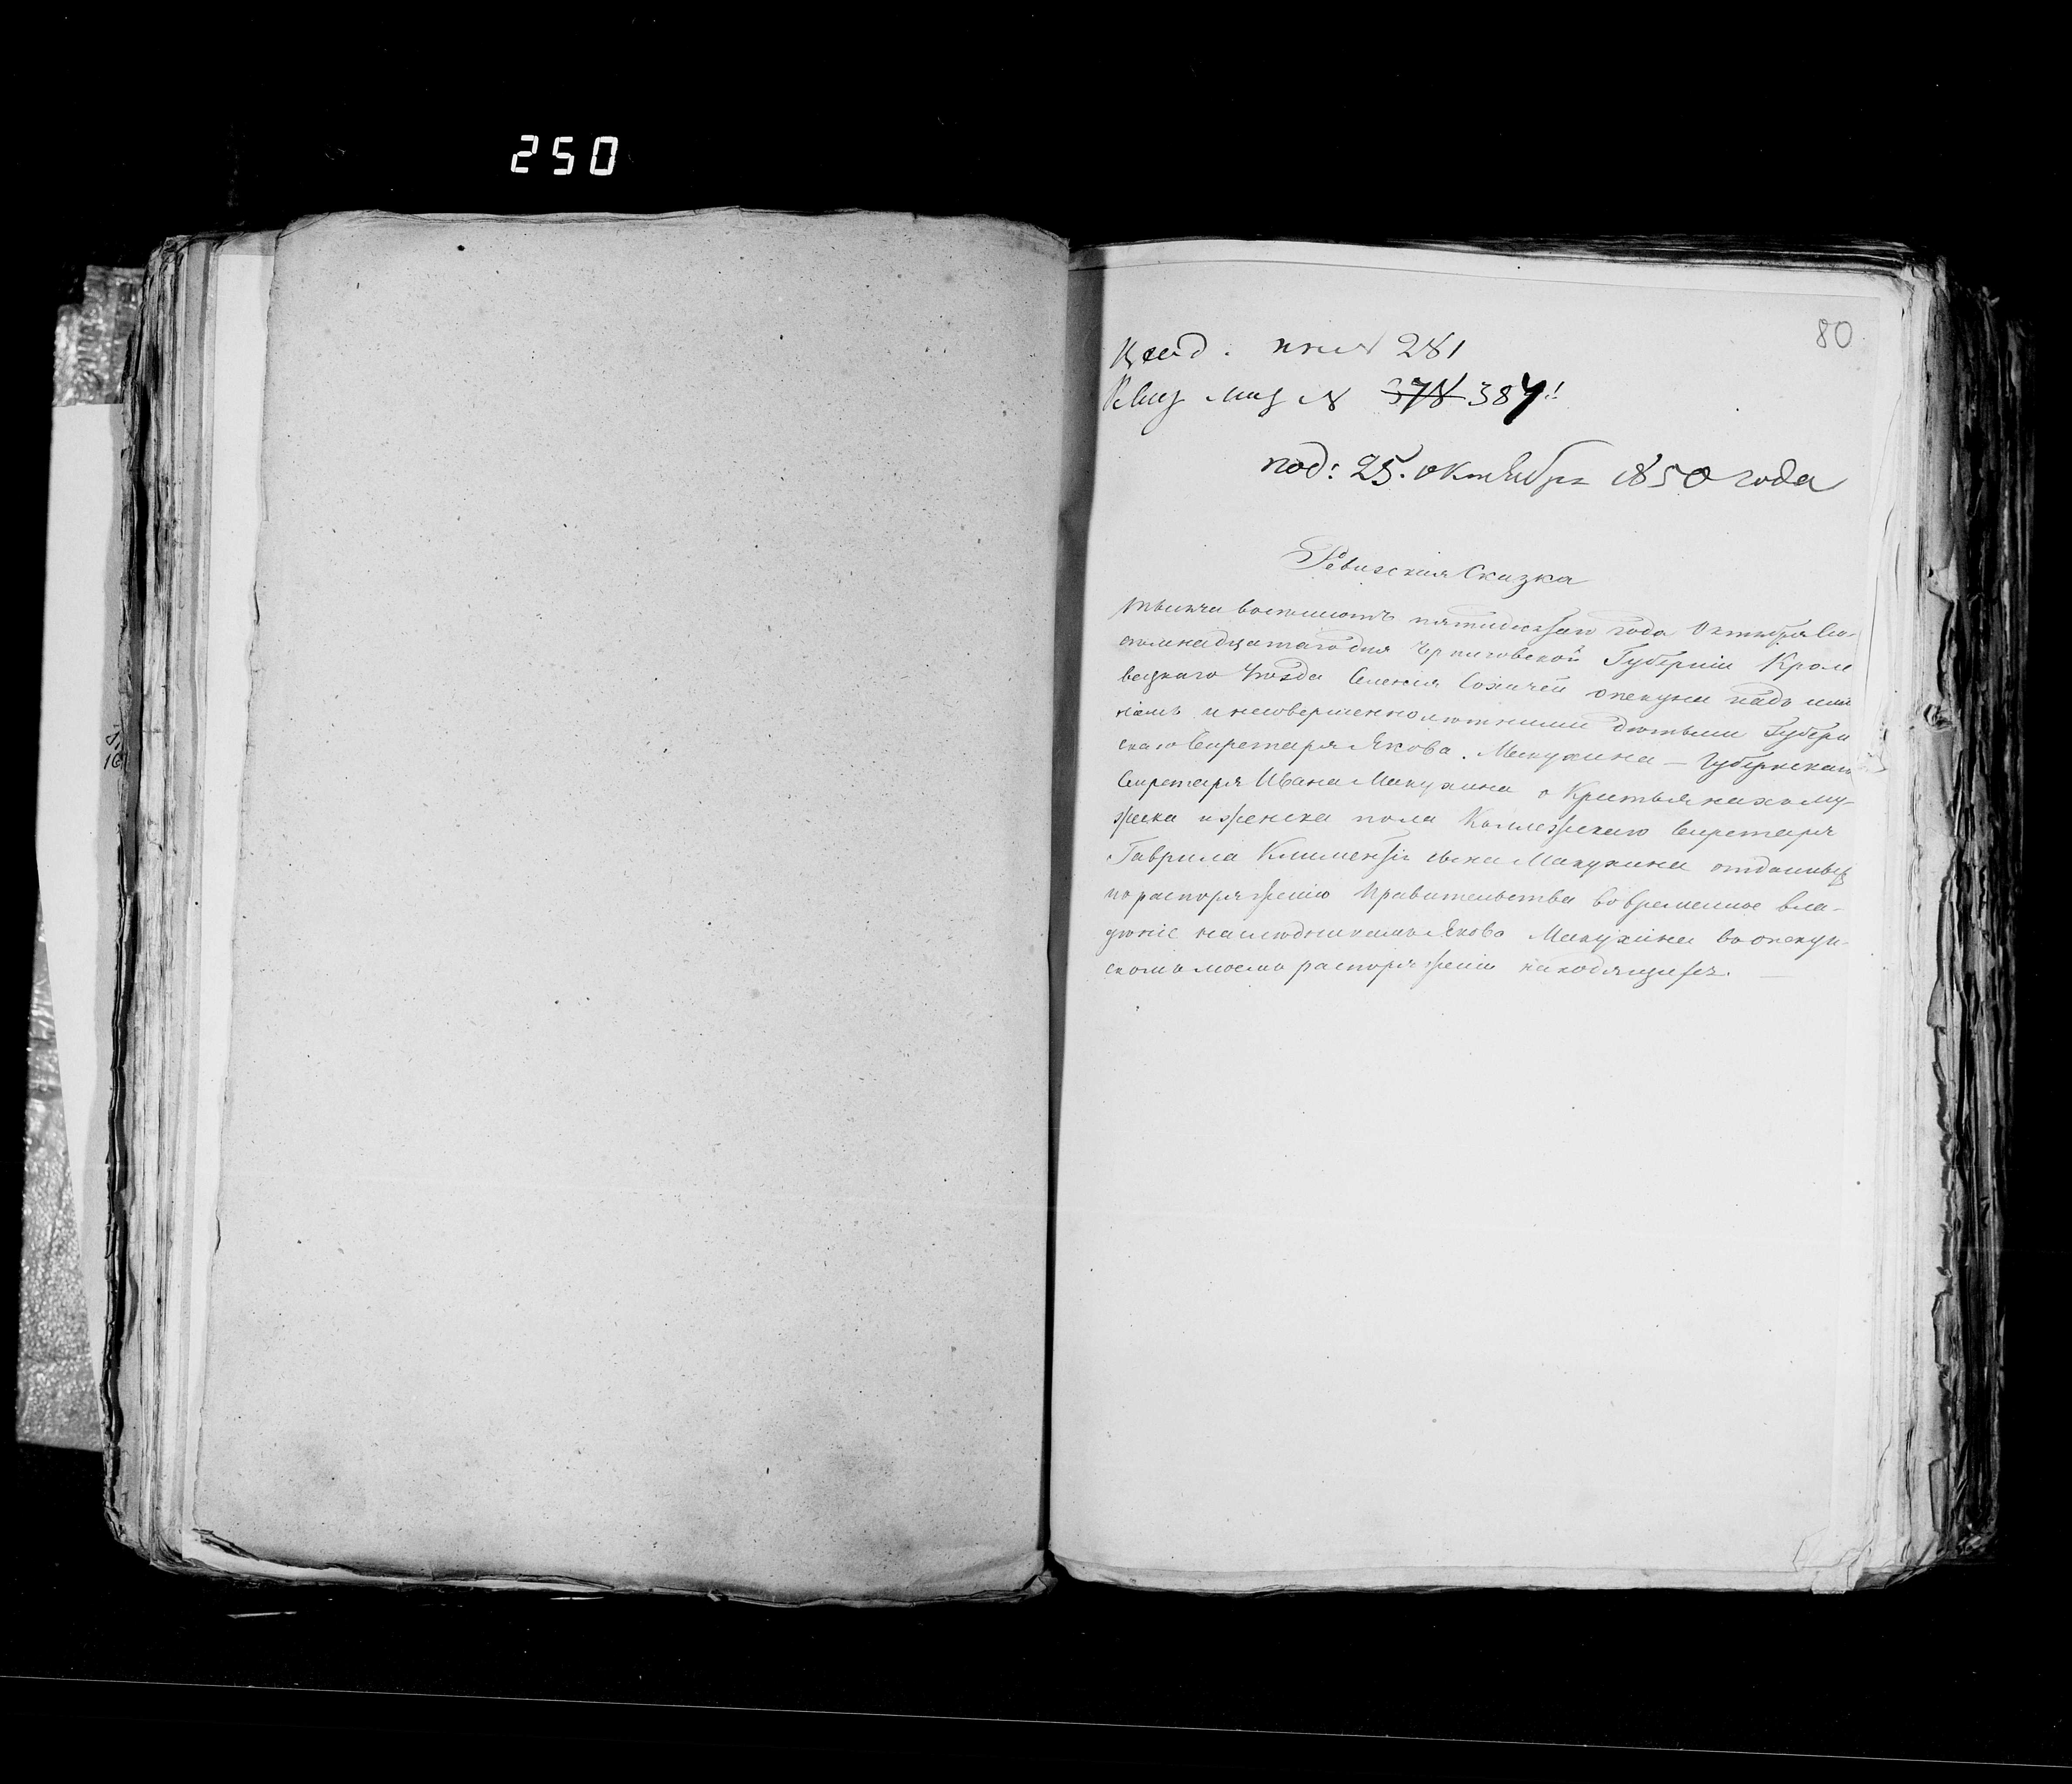 250
80
№ 281
Квиз № 378 384
под: 25. октября 1850 года
Ревизская Сказка
тысяча восемьсотъ пятидесятаго года Октября Се-
домнадцатаго дня Черниговской Губерніи Кроле
вецкаго Уѣзда Селенія Сохачей опекуна надъ имѣ
ніемъ и несовершеннолѣтними дѣтьми Губерн
скаго Секретаря Якова Макухина — Губернскаго
Секретаря Ивана Макухина о Крестьянахъ му-
жеска и женска пола Коллежскаго Секретаря
Гаврила Климентія сына Макухина отданныхъ
по распоряженію Правительства во временное вла-
дѣніе наслѣдникамъ Якова Макухина въ опекун-
скомъ моемъ распоряженіи находящихся. —